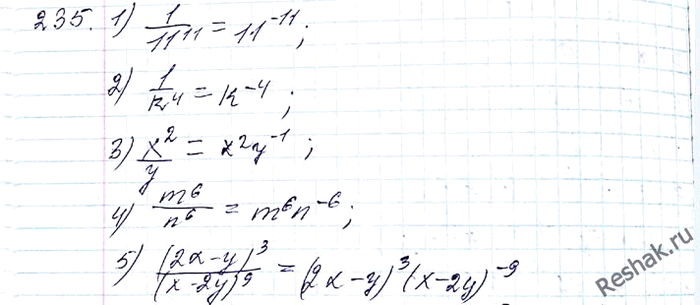 235. 1) 1/11¹¹ = 11⁻¹¹;
2) 1/k⁴ = k⁻⁴;
3) x²/y = x²y⁻¹;
4) m⁶/n⁶ = m⁶n⁻⁶;
5) (2x-y)³/(x-2y)⁹ = (2x-y)³(x-2y)⁻⁹
Reshak.ru